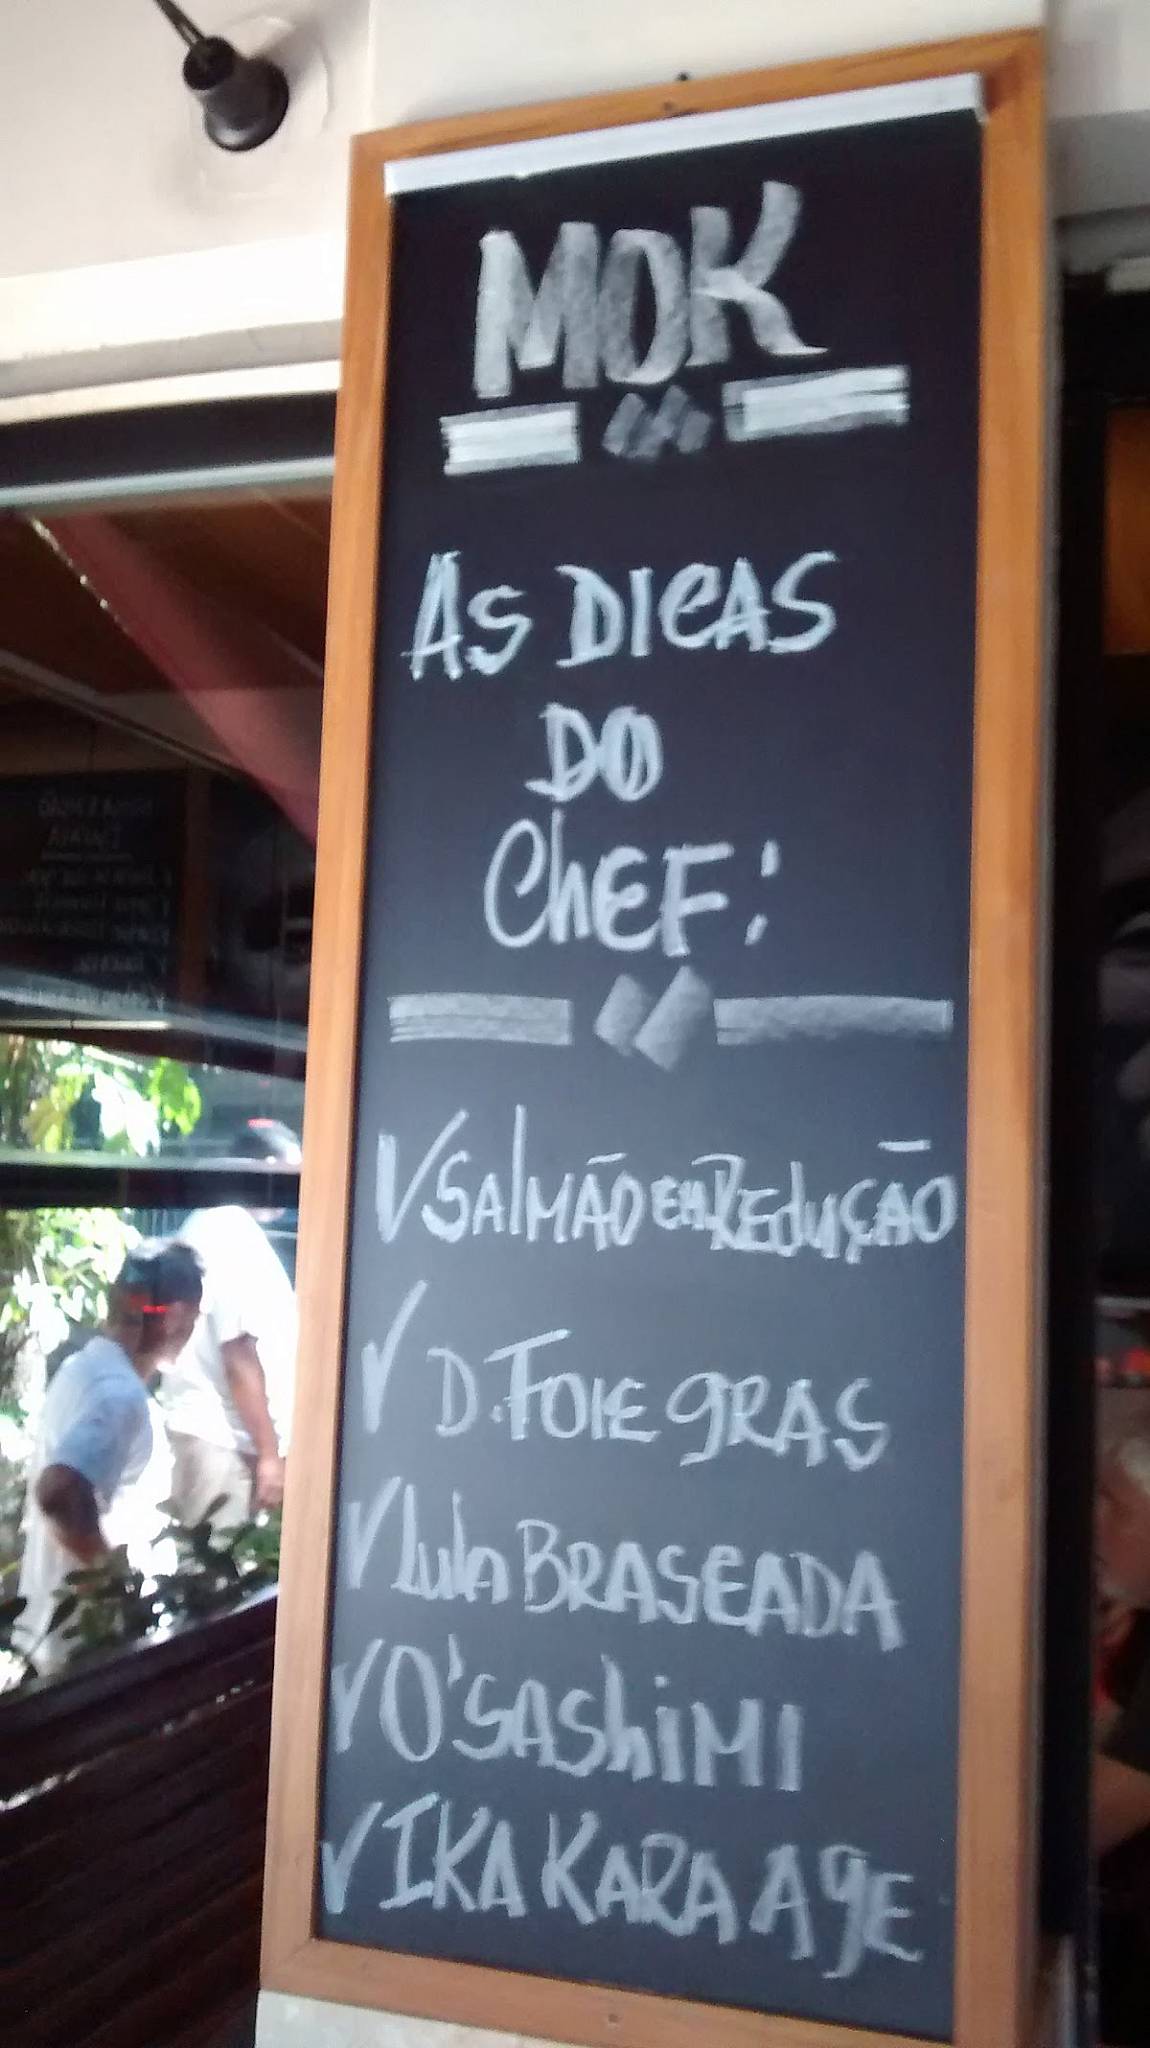 MOK
AS DICAS
DO
ChEF:
SAlMÃO EM REduÇÃO
D. FOIE gRAS
lula BRASEADA
O'SAShiMI
IKA KARA AgE